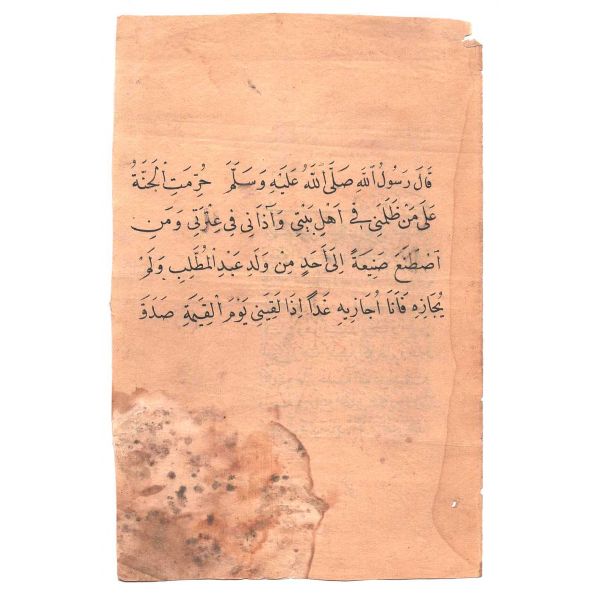 قَالَ رَسُولُ اللّٰهِ صَلَّى اللّٰهُ عَلَيْهِ وَسَلَّمَ حُرِّمَتِ الْجَنَّةُ
عَلَى مَنْ ظَلَمَنِي فِي اَهْلِ بَيْتِي وَآذَانِي فِي عِتْرَتِي وَمَنِ
اصْطَنَعَ صَنِيعَةً اِلَى أَحَدٍ مِنْ وَلَدِ عَبْدِ الْمُطَّلِبِ وَلَمْ
يُجَازِهِ فَاَنَا اُجَازِيهِ غَدًا اِذَا لَقِيَنِي يَوْمَ الْقِيٰمَةِ صَدَقَ